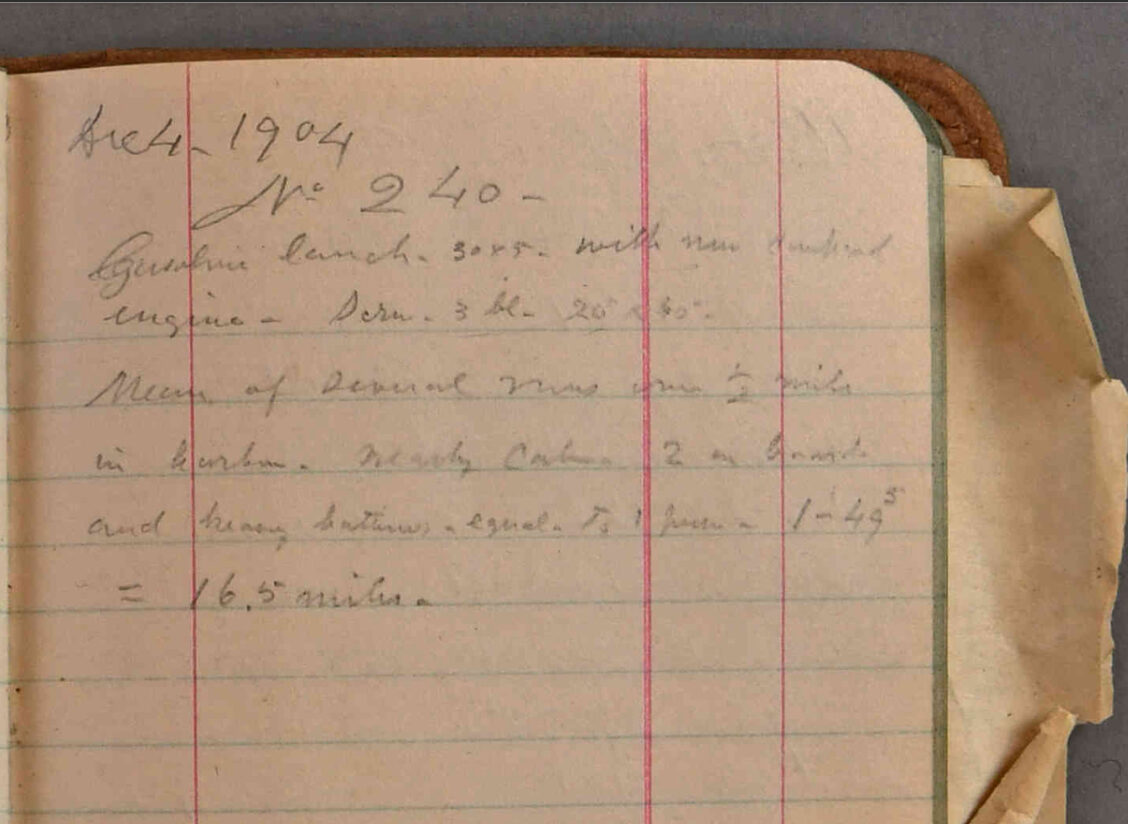 Dec 4 - 1904
No 240 -
Gasoline lanch - 30x5 - with new
engine - Scru - 3 bl - 20" x
Mean of several runs over 1/2 mile
in harbor - nearly calm - 2 on board
and heavy batterys - equal - to 1 - 1-49⁵
= 16.5 miles -